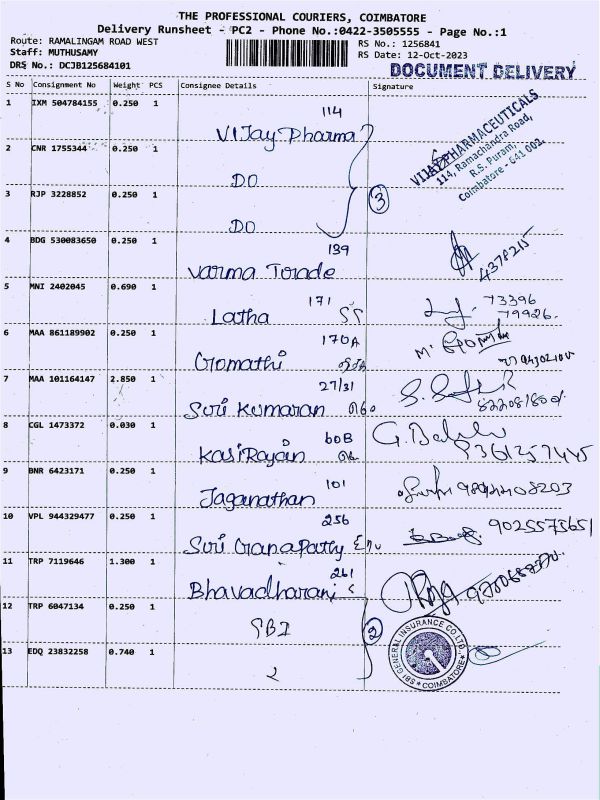 THE PROFESSIONAL COURIERS, COIMBATORE
Delivery Runsheet - PC2 - Phone No.:0422-3505555 - Page No.:1
Route: RAMALINGAM ROAD WEST
RS No.: 1256841
Staff: MUTHUSAMY
RS Date: 12-Oct-2023
DRS No.: DCJB125684101
DOCUMENT DELIVERY
S No Consignment No Weight PCS Consignee Details Signature
1 IXM 504784155 0.250 1 114
Vijay Pharma
VIJAY PHARMACEUTICALS
114, Ramachandra Road,
R.S. Puram,
Coimbatore - 641 002.
2 CNR 1755344 0.250 1
DO
3 RJP 3228852 0.250 1
DO
3
4 BDG 530083650 0.250 1 139
Varma Torade
4378215
5 MNI 2402045 0.690 1 171
Latha
73396
79926
6 MAA 861189902 0.250 1 170A
Gomathi
7 MAA 101164147 2.850 1 27/31
Suri Kumaran
8 CGL 1473372 0.030 1 60B
KasiRajain
9 BNR 6423171 0.250 1 101
Jaganathan
10 VPL 944329477 0.250 1 256
Suri Ganapathy
9025575651
11 TRP 7119646 1.300 1 261
Bhavadharani
12 TRP 6047134 0.250 1
SBI
2
SBI GENERAL INSURANCE CO.LTD.
COIMBATORE
13 EDQ 23832258 0.740 1